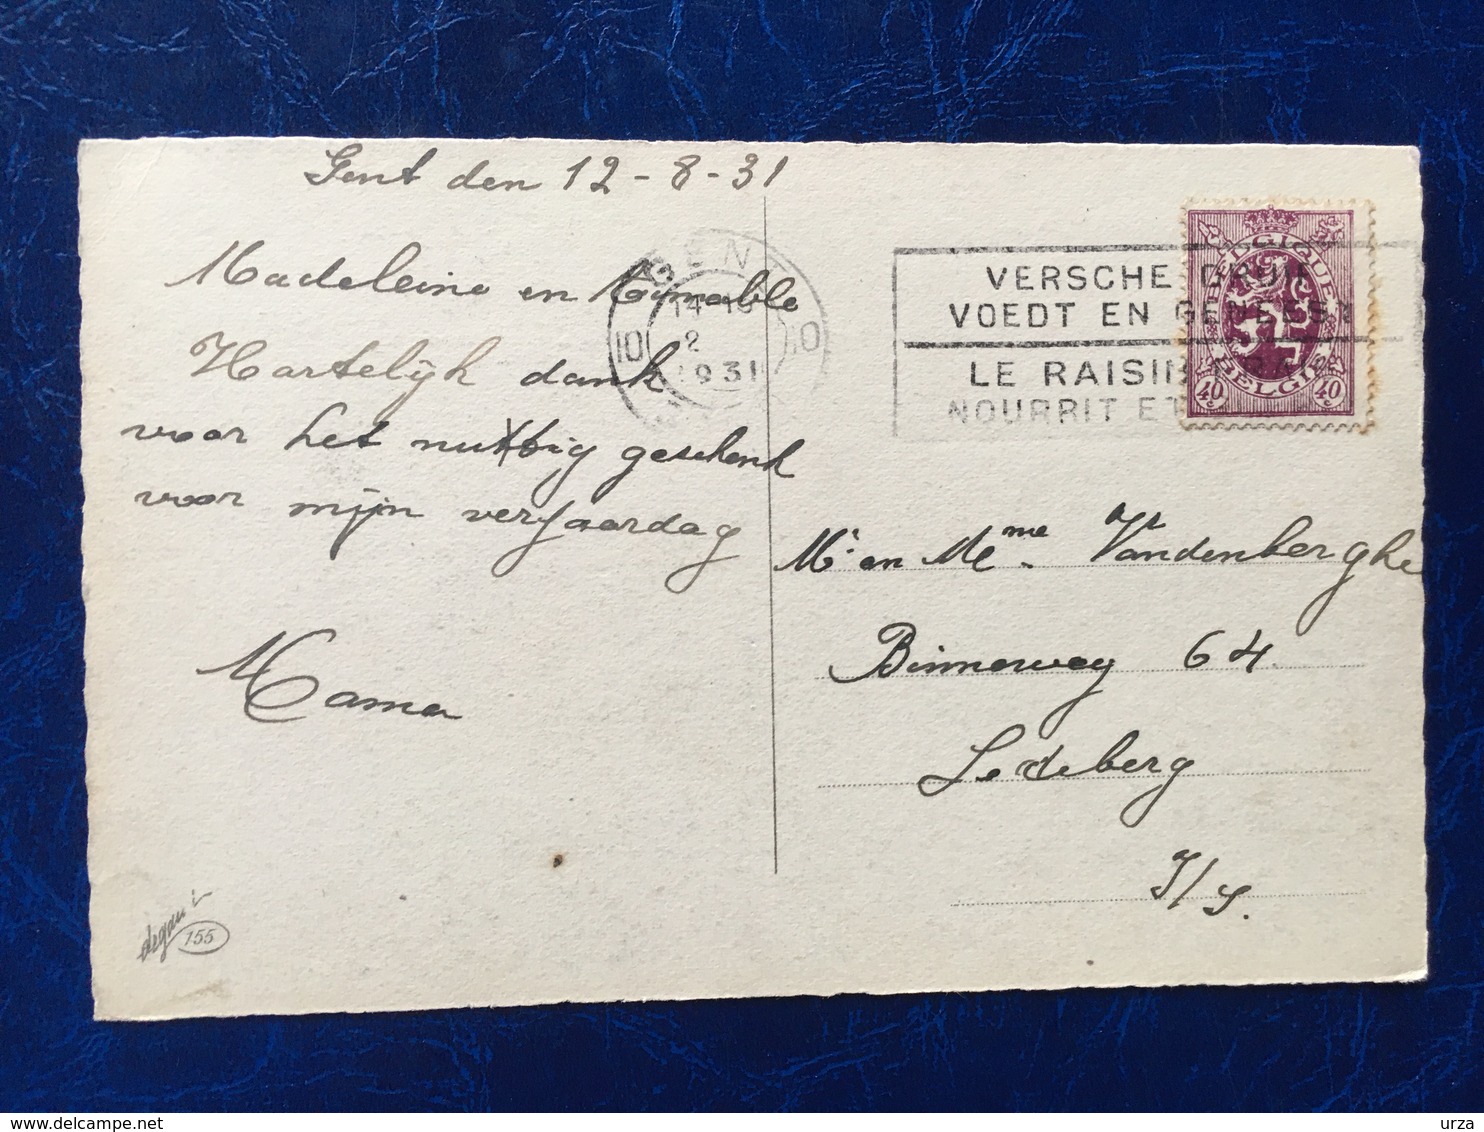 Gent den 12-8-31
Madeleine en Aymable
Hartelijk dank
voor het nuttig geschenk
voor mijn verjaardag
Mama
degami
155
GENT
14-15
10 10
2
1931
VERSCHE DRUIF
VOEDT EN GENEEST
LE RAISIN FRAIS
NOURRIT ET
BELGIQUE
BELGIE
40c 40c
Mr en Meme Vr Vandenberghe
Binnenweg 64.
Ledeberg
urza